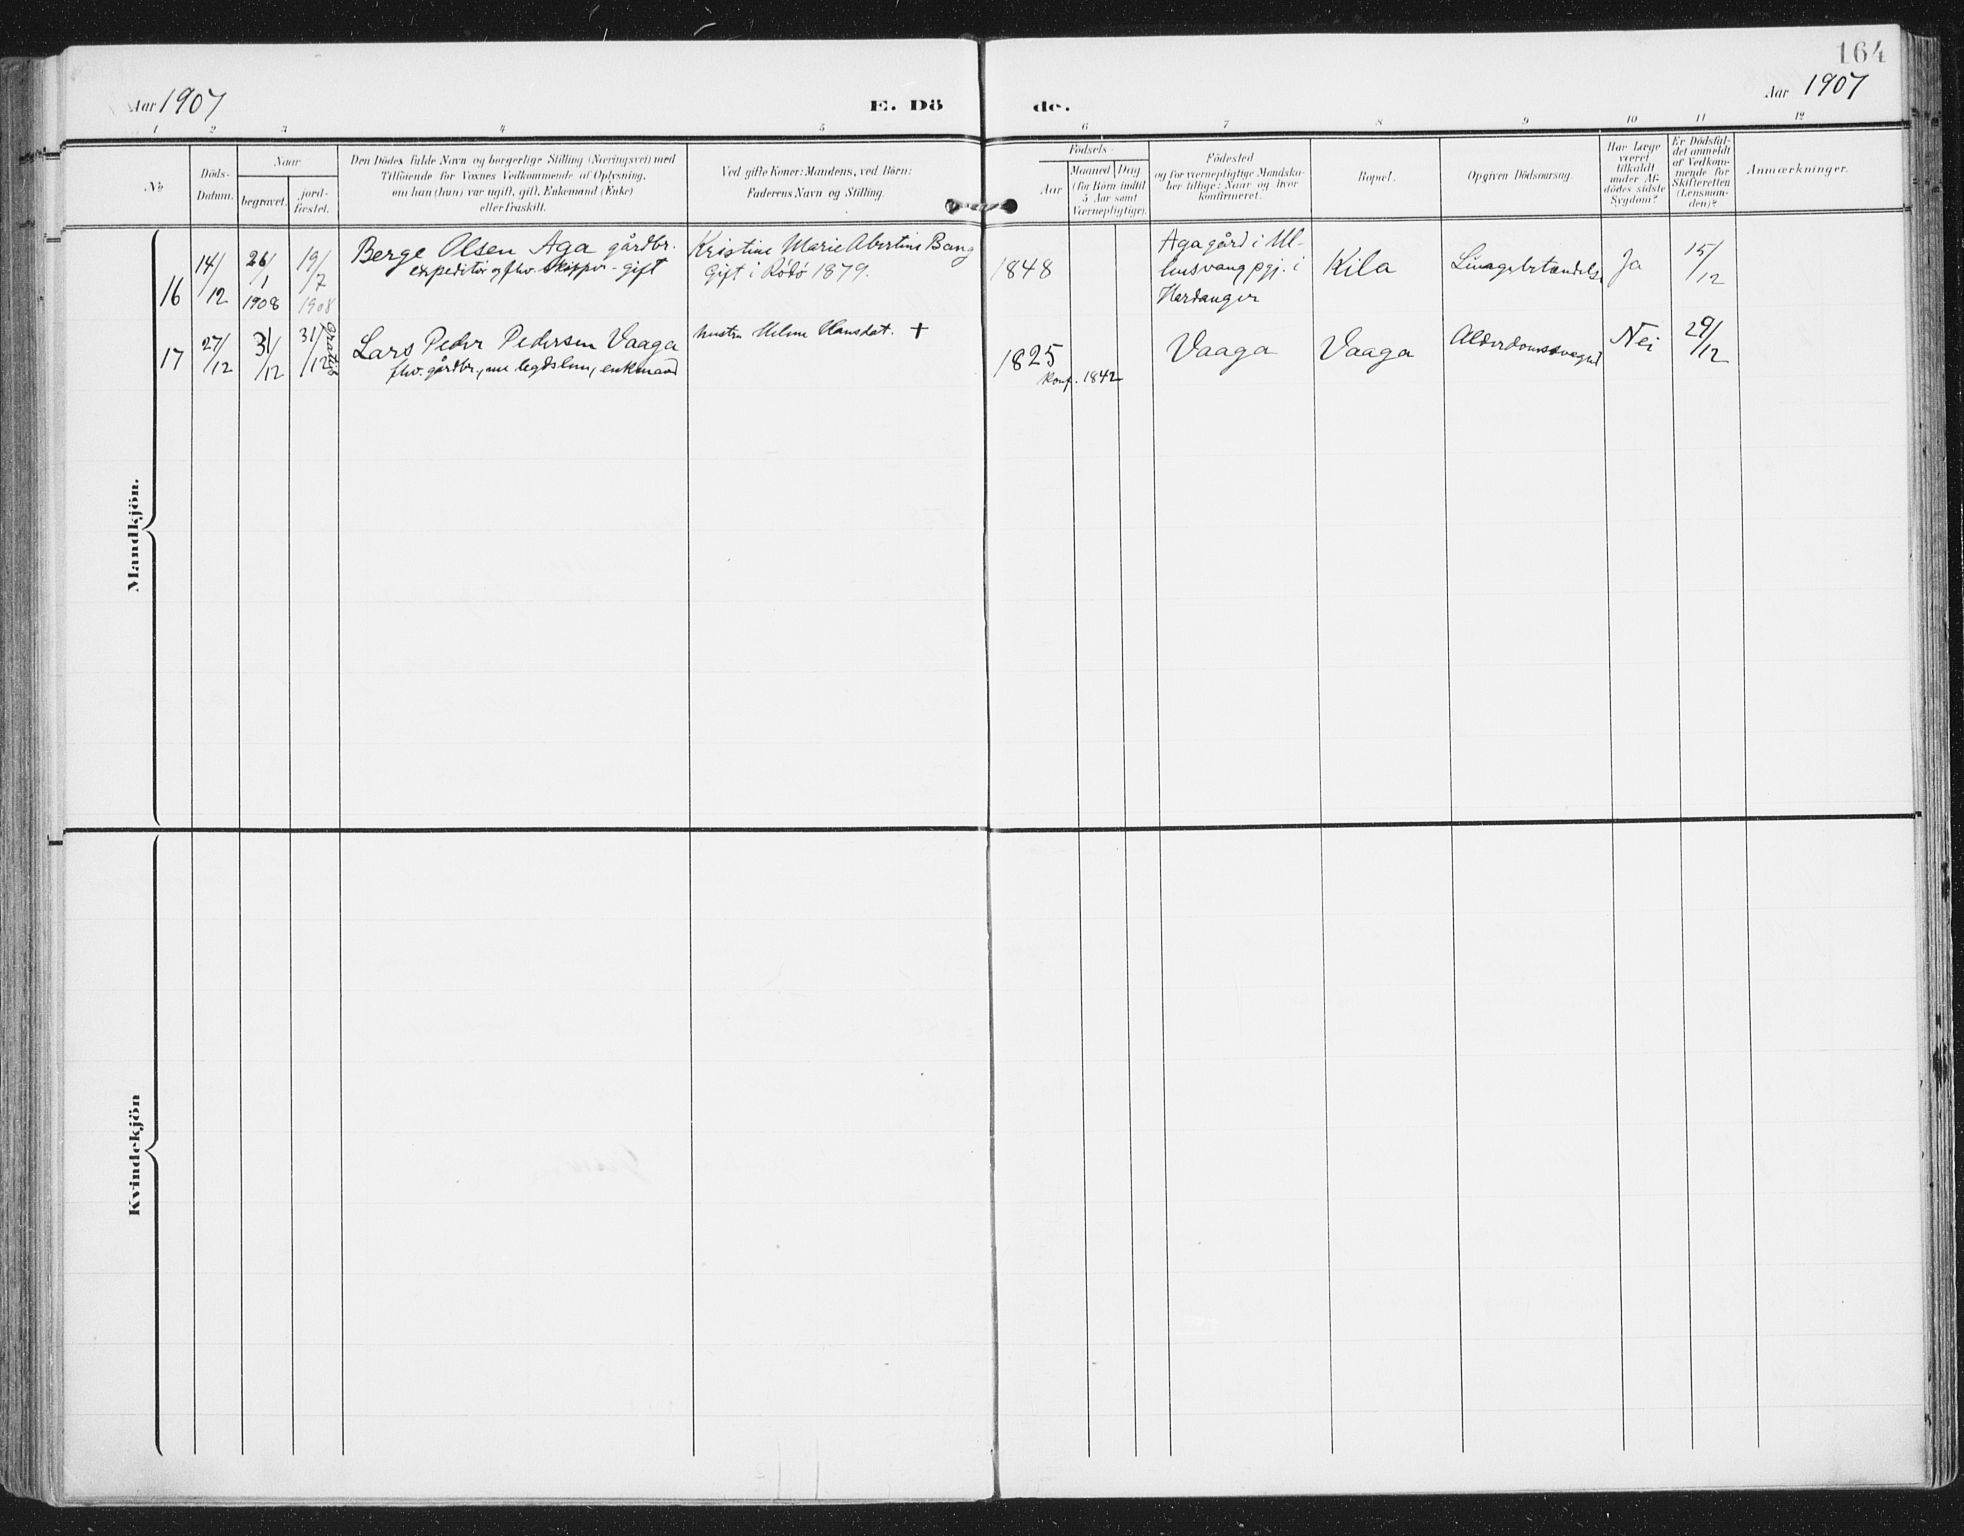 164
Aar 1907
E. Dö
de.
Aar 1907
1 2 3 4 5 6 7 8 9 10 11 12
No
Döds-
Datum.
Naar
begravet.
jord-
fæstet.
Den Dödes fulde Navn og borgerlige Stilling (Næringsvei) med
Tilföiende for Voxnes Vedkommende af Oplysning,
om han (hun) var ugift, gift, Enkemand (Enke)
eller fraskilt.
Ved gifte Koner: Mandens, ved Börn:
Faderens Navn og Stilling.
Födsels-
Aar
Maaned
Dag
(for Börn indtil
5 Aar samt
Værnepligtige).
Födested
og for værnepligtige Mandska-
ber tillige: Naar og hvor
konfirmeret.
Bopæl.
Opgiven Dödsaarsag.
Har Læge
været
tilkaldt
under Af-
dödes sidste
Sygdom?
Er Dödsfal-
det anmeldt
af Vedkom-
mende for
Skifteretten
(Lensman-
den)?
Anmærkninger.
Mandkjön.
16
14/12
26/1
1908
19/7
1908
Berge Olsen Aga gårdbr.
expeditør og fhv. skipper - gift
Kristine Marie Abertine Bang
Gift i Rödö 1879.
1848
Aga gård i Ul-
lensvang pgj. i
Hardanger
Kila
Ja
15/12
17
27/12
31/12
31/12
Gratis
Lars Peder Pedersen Vaaga
fhv. gårdbr., nu legdslem, enkemand
hustru Helene Hansdat. +
1825
konf. 1842
Vaaga
Vaaga
Alderdomssvaghed
Nei
29/12
Kvindekjön